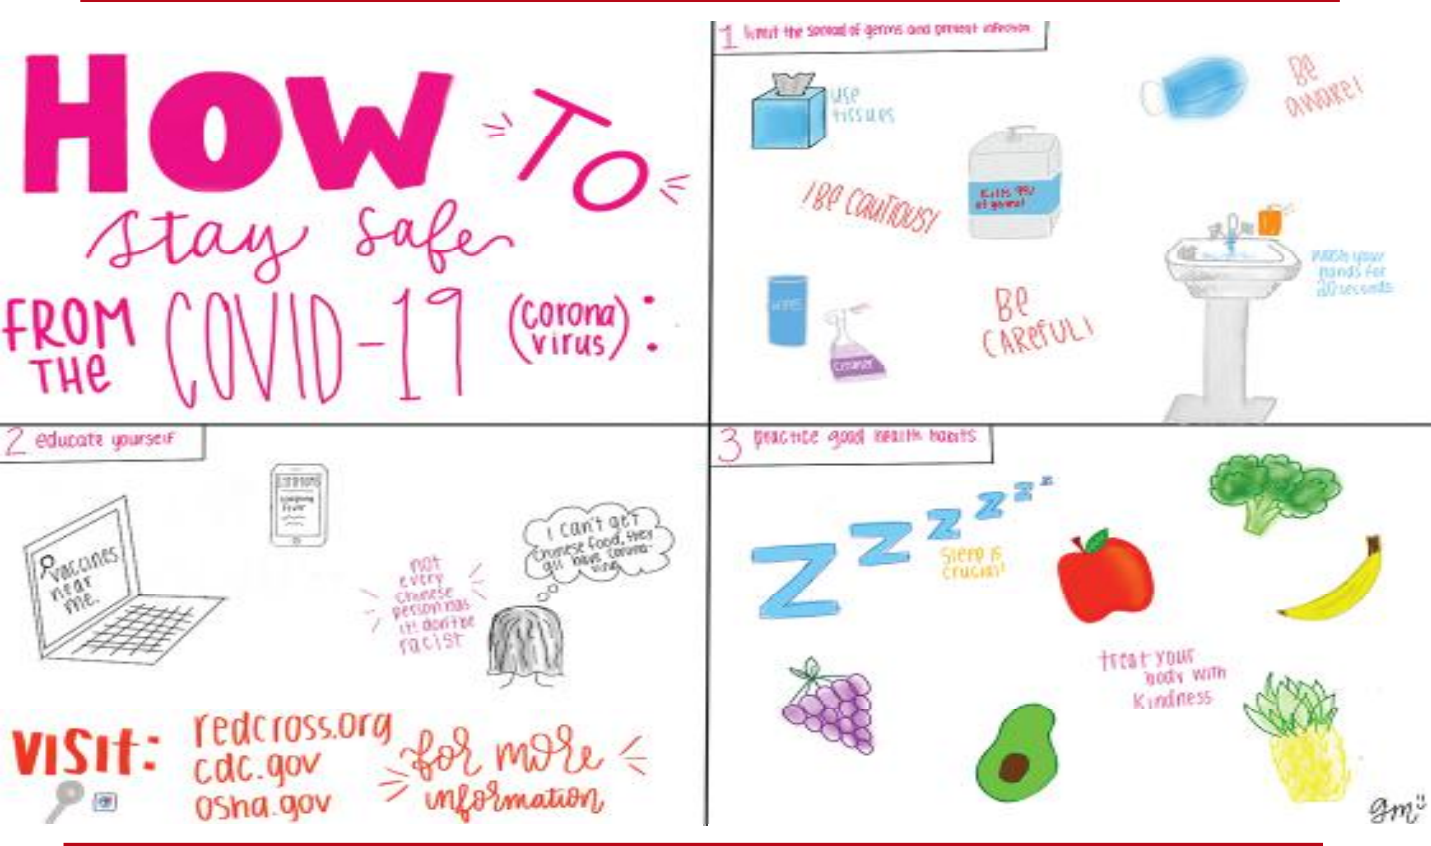 HOW TO
stay safe
FROM THE COVID-19 (corona virus):
1 limit the spread of germs and prevent infection
use
tissues
BE
aware!
!BE CAUTIOUS!
Kills 99%
of germs!
wash your
hands for
20 seconds
WIPES
cleaner
BE
CAREFUL!
2 educate yourself
vaccines
near
me.
SYMPTOMS
coughing
fever
not
every
chinese
person has
it! don't be
racist
I can't get
chinese food, they
all have corona-
virus
VISIT:
redcross.org
cdc.gov
osha.gov
for more
information
3 practice good health habits
Z Z Z Z Z Z
Sleep is
crucial!
treat your
body with
kindness
gm